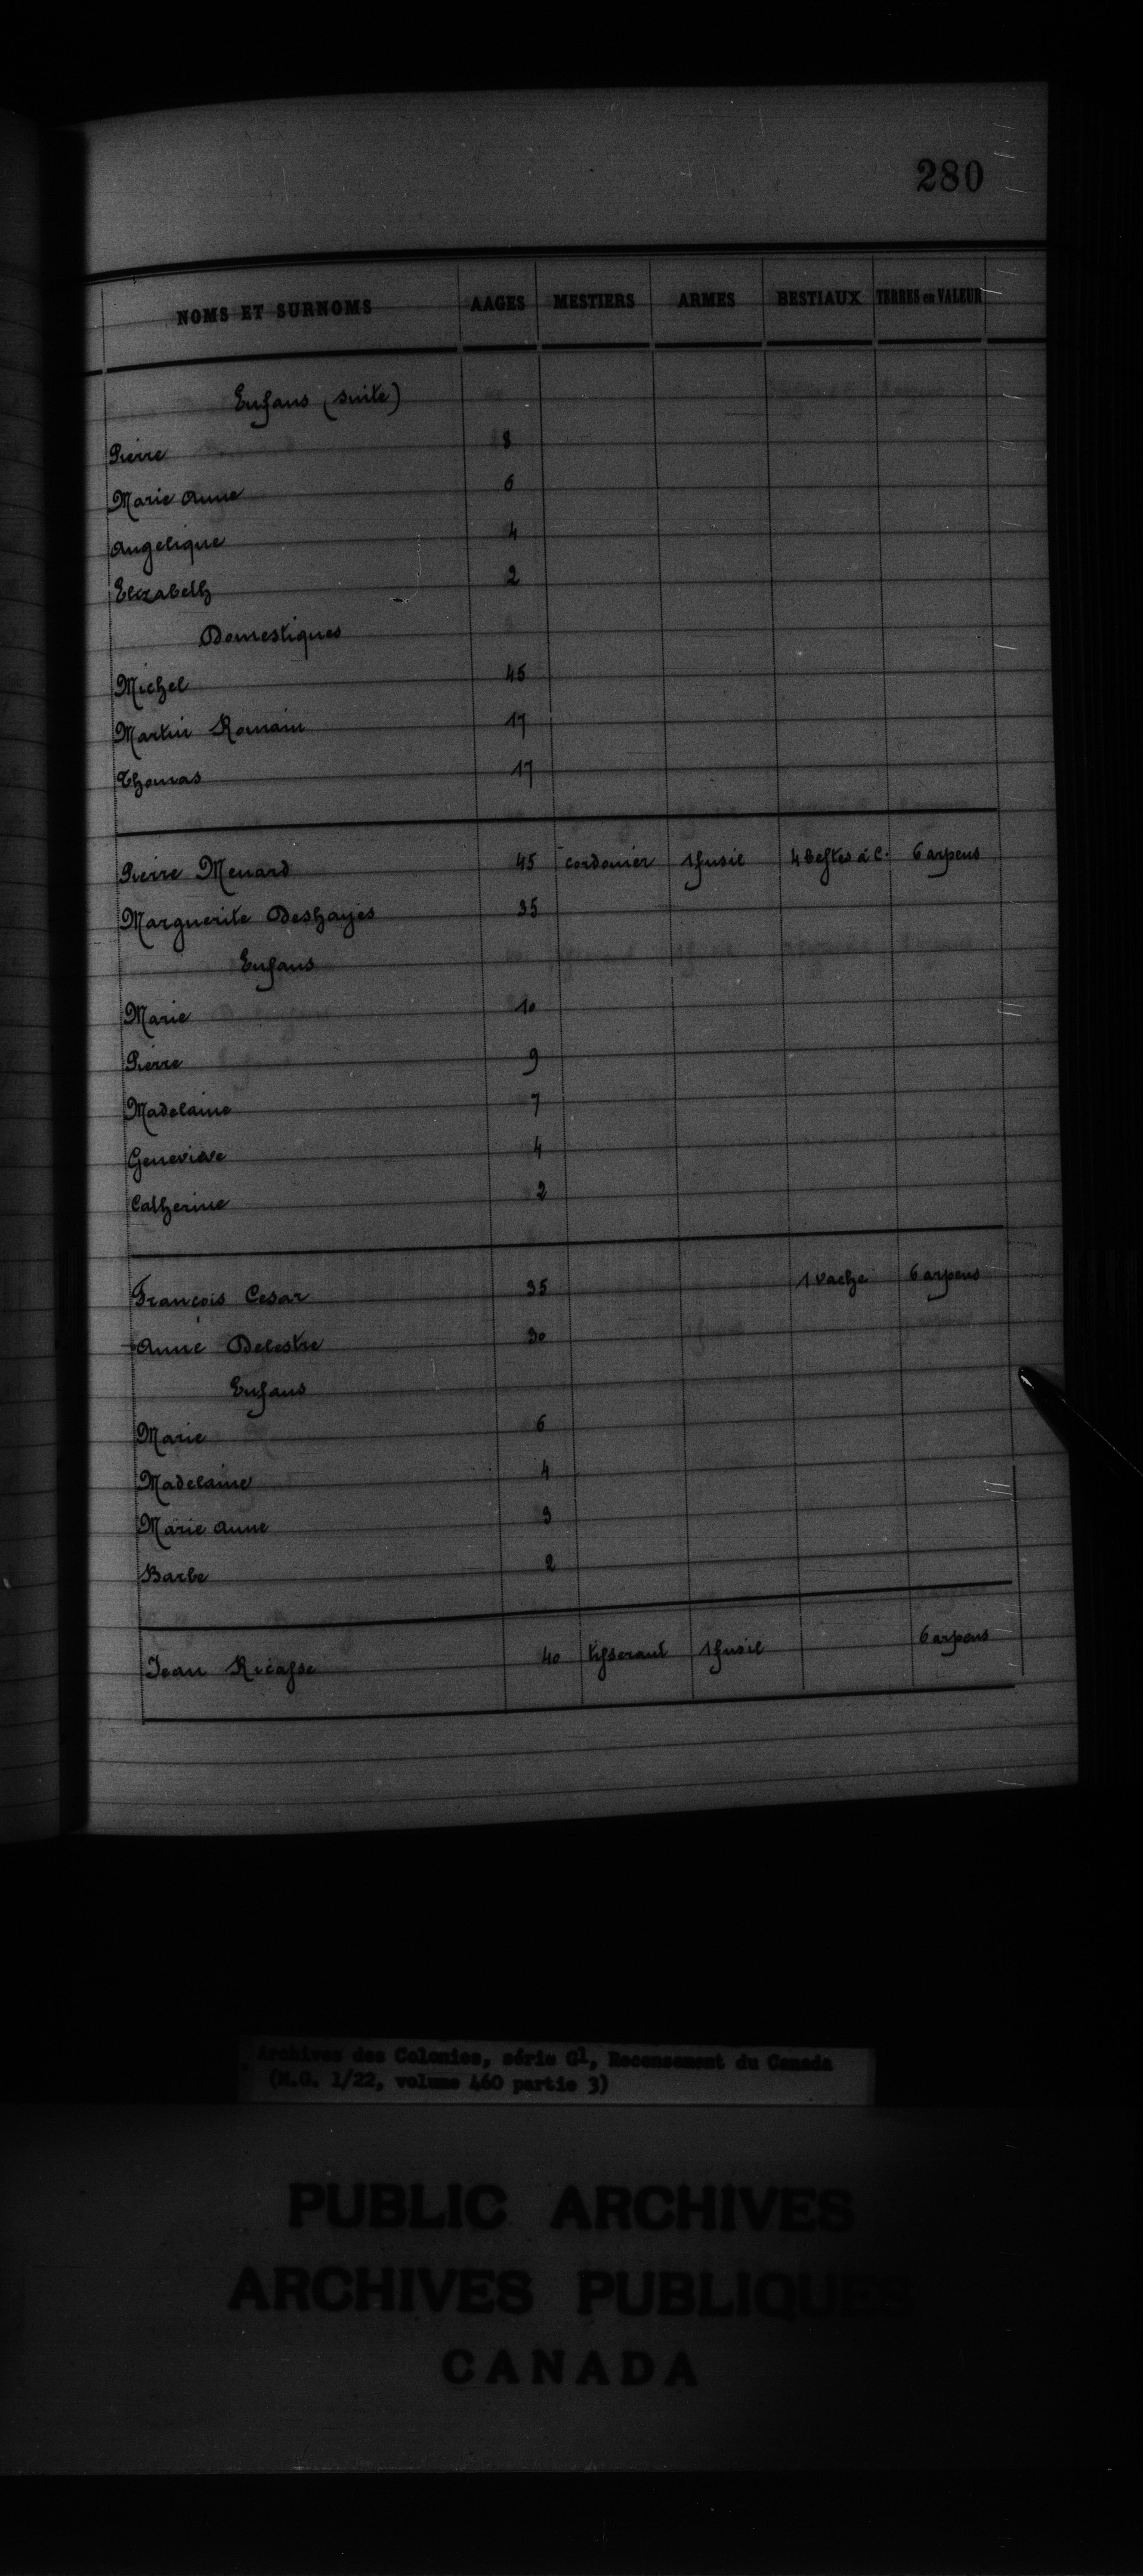 280
NOMS ET SURNOMS AAGES MESTIERS ARMES BESTIAUX TERRES en VALEUR
Enfans (suite)
Pierre 8
Marie Anne 6
Angelique 4
Elizabeth 2
Domestiques
Michel 45
Martin Romain 17
Thomas 17
Pierre Menard 45 cordonier 1 fusil 4 bestes à C. 6 arpens
Marguerite Deshayes 35
Enfans
Marie 10
Pierre 9
Madelaine 7
Geneviève 4
Catherine 2
François Cesar 35 1 vache 6 arpens
Anne Delestre 30
Enfans
Marie 6
Madelaine 4
Marie Anne 3
Barbe 2
Jean Ricasse 40 tisserant 1 fusil 6 arpens
Archives des Colonies, série G1, Recensement du Canada
(M.G. 1/22, volume 460 partie 3)
PUBLIC ARCHIVES
ARCHIVES PUBLIQUES
CANADA